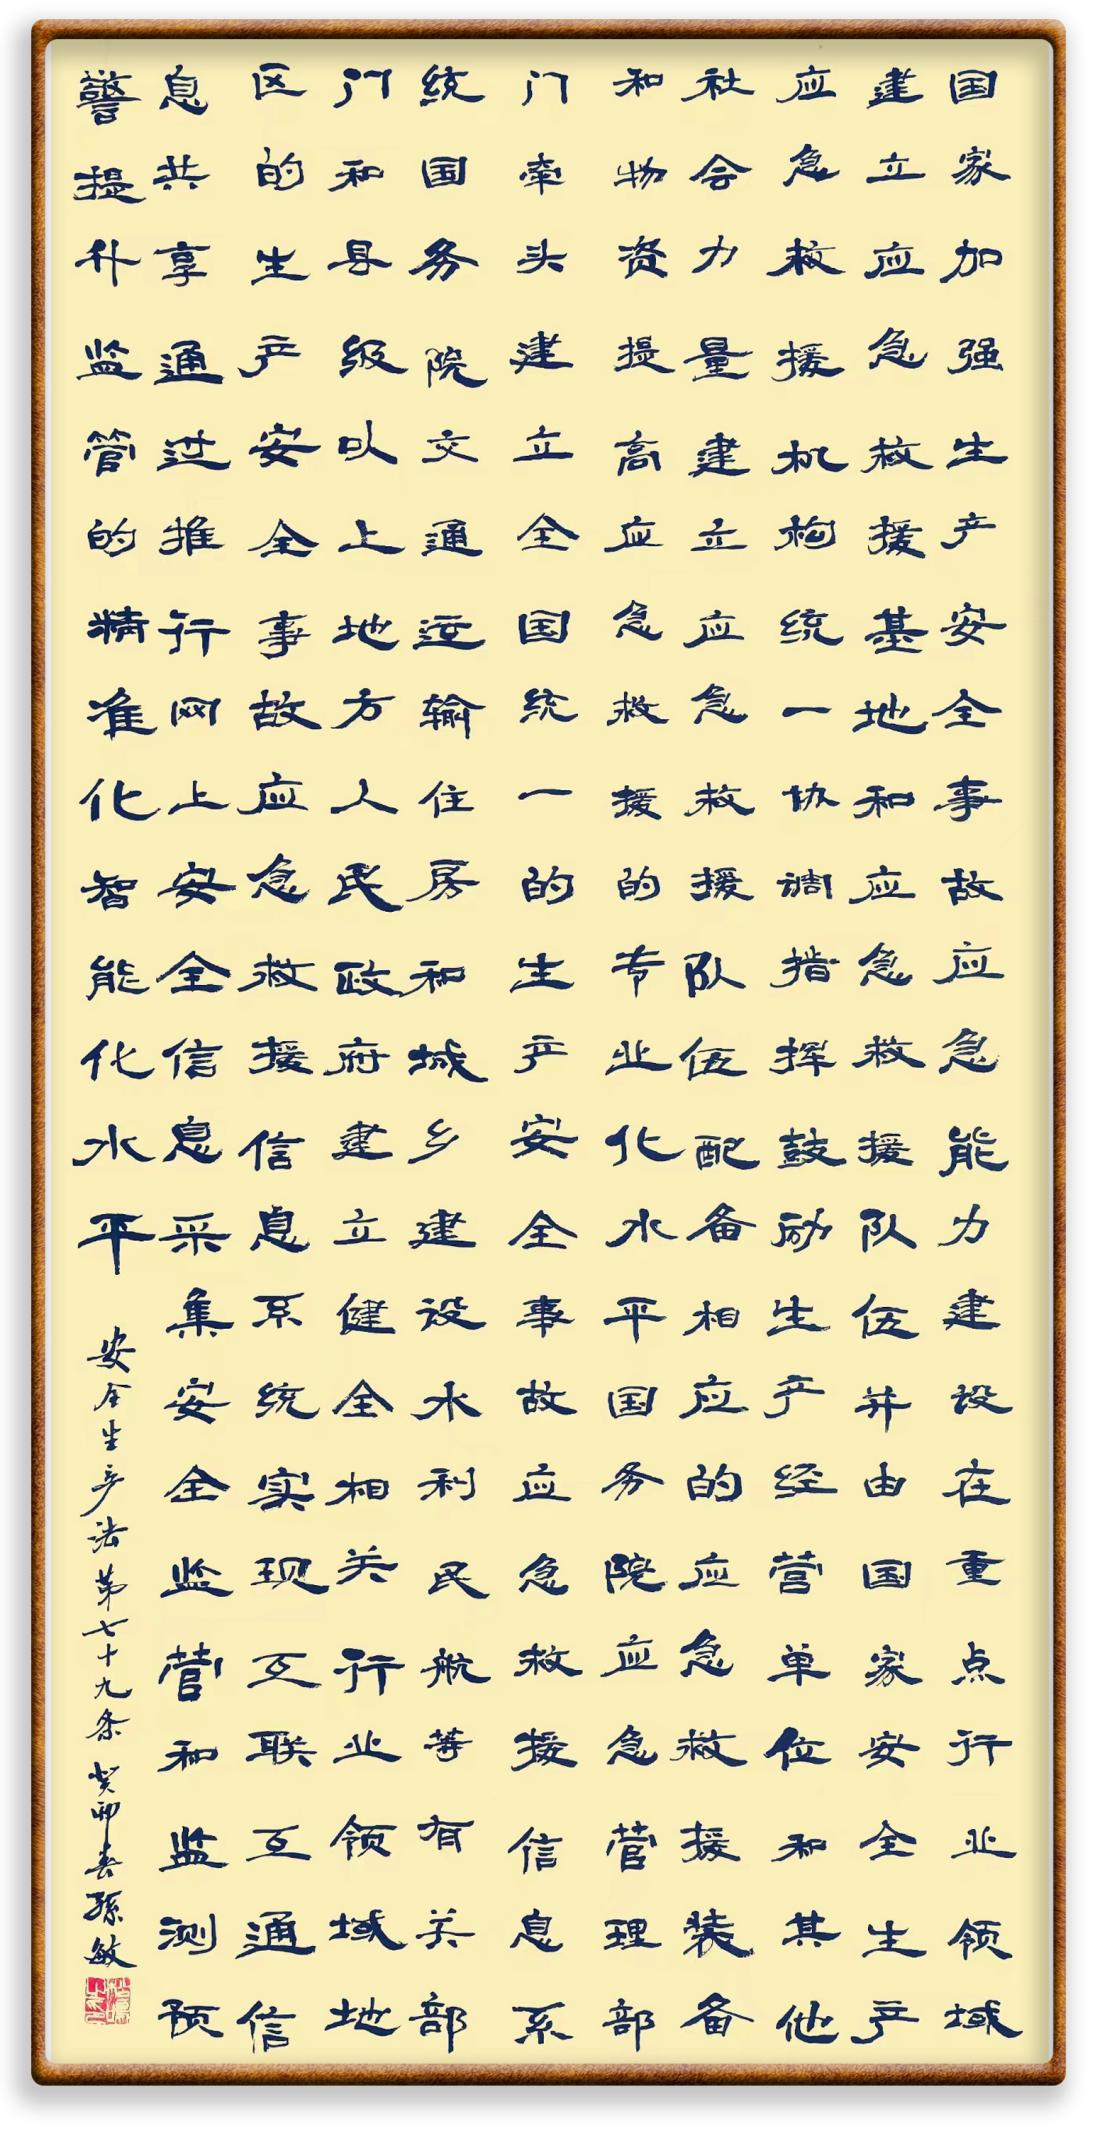 国家加强生产安全事故应急能力建设在重点行业领域
建立应急救援基地和应急救援队伍并由国家安全生产
应急救援机构统一协调指挥鼓励生产经营单位和其他
社会力量建立应急救援队伍配备相应的应急救援装备
和物资提高应急救援的专业化水平国务院应急管理部
门牵头建立全国统一的生产安全事故应急救援信息系
统国务院交通运输住房和城乡建设水利民航等有关部
门和县级以上地方人民政府建立健全相关行业领域地
区的生产安全事故应急救援信息系统实现互联互通信
息共享通过推行网上安全信息采集安全监管和监测预
警提升监管的精准化智能化水平
安全生产法第七十九条 癸卯春孙敏